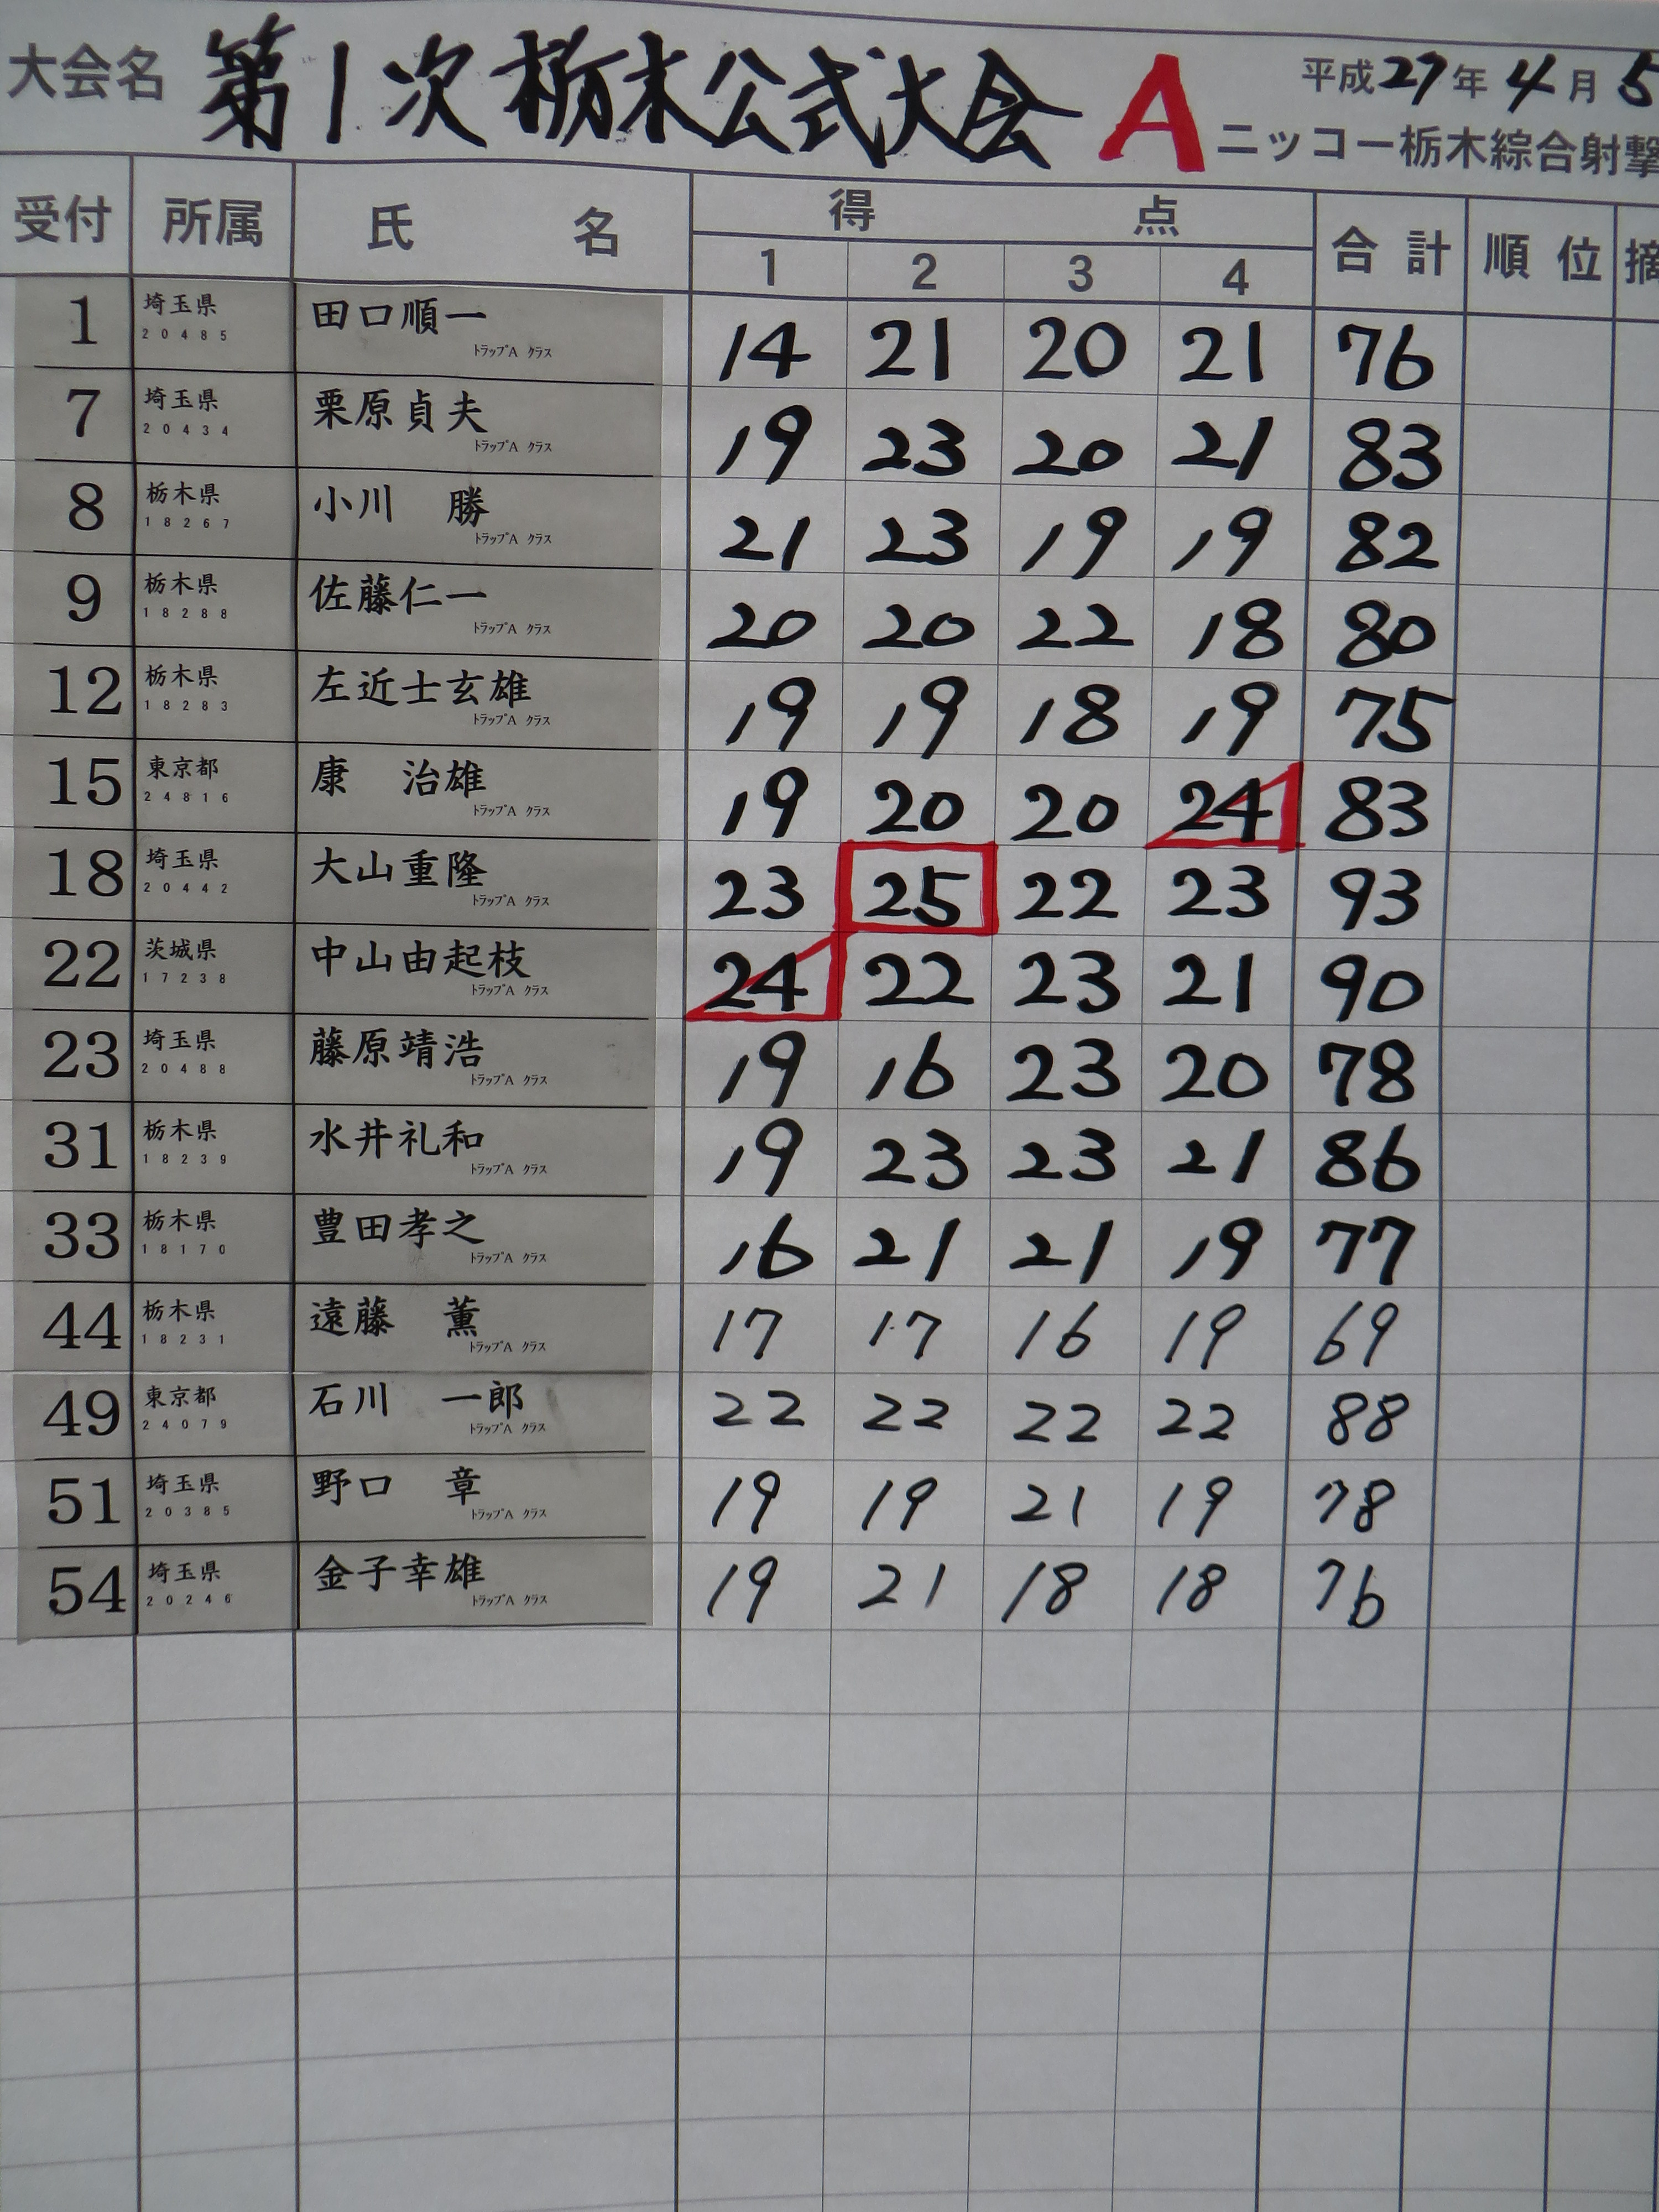 大会名 第1次栃木公式大会 A 平成27年4月5
ニッコー栃木綜合射撃
受付 所属 氏名 得点 合計 順位 摘
1 2 3 4
1 埼玉県 田口順一 14 21 20 21 76
20485 トラップA クラス
7 埼玉県 栗原貞夫 19 23 20 21 83
20434 トラップA クラス
8 栃木県 小川 勝 21 23 19 19 82
18267 トラップA クラス
9 栃木県 佐藤仁一 20 20 22 18 80
18288 トラップA クラス
12 栃木県 左近士玄雄 19 19 18 19 75
18283 トラップA クラス
15 東京都 康 治雄 19 20 20 24 83
24816 トラップA クラス
18 埼玉県 大山重隆 23 25 22 23 93
20442 トラップA クラス
22 茨城県 中山由起枝 24 22 23 21 90
17238 トラップA クラス
23 埼玉県 藤原靖浩 19 16 23 20 78
20488 トラップA クラス
31 栃木県 水井礼和 19 23 23 21 86
18239 トラップA クラス
33 栃木県 豊田孝之 16 21 21 19 77
18170 トラップA クラス
44 栃木県 遠藤 薫 17 17 16 19 69
18231 トラップA クラス
49 東京都 石川 一郎 22 22 22 22 88
24079 トラップA クラス
51 埼玉県 野口 章 19 19 21 19 78
20385 トラップA クラス
54 埼玉県 金子幸雄 19 21 18 18 76
20246 トラップA クラス